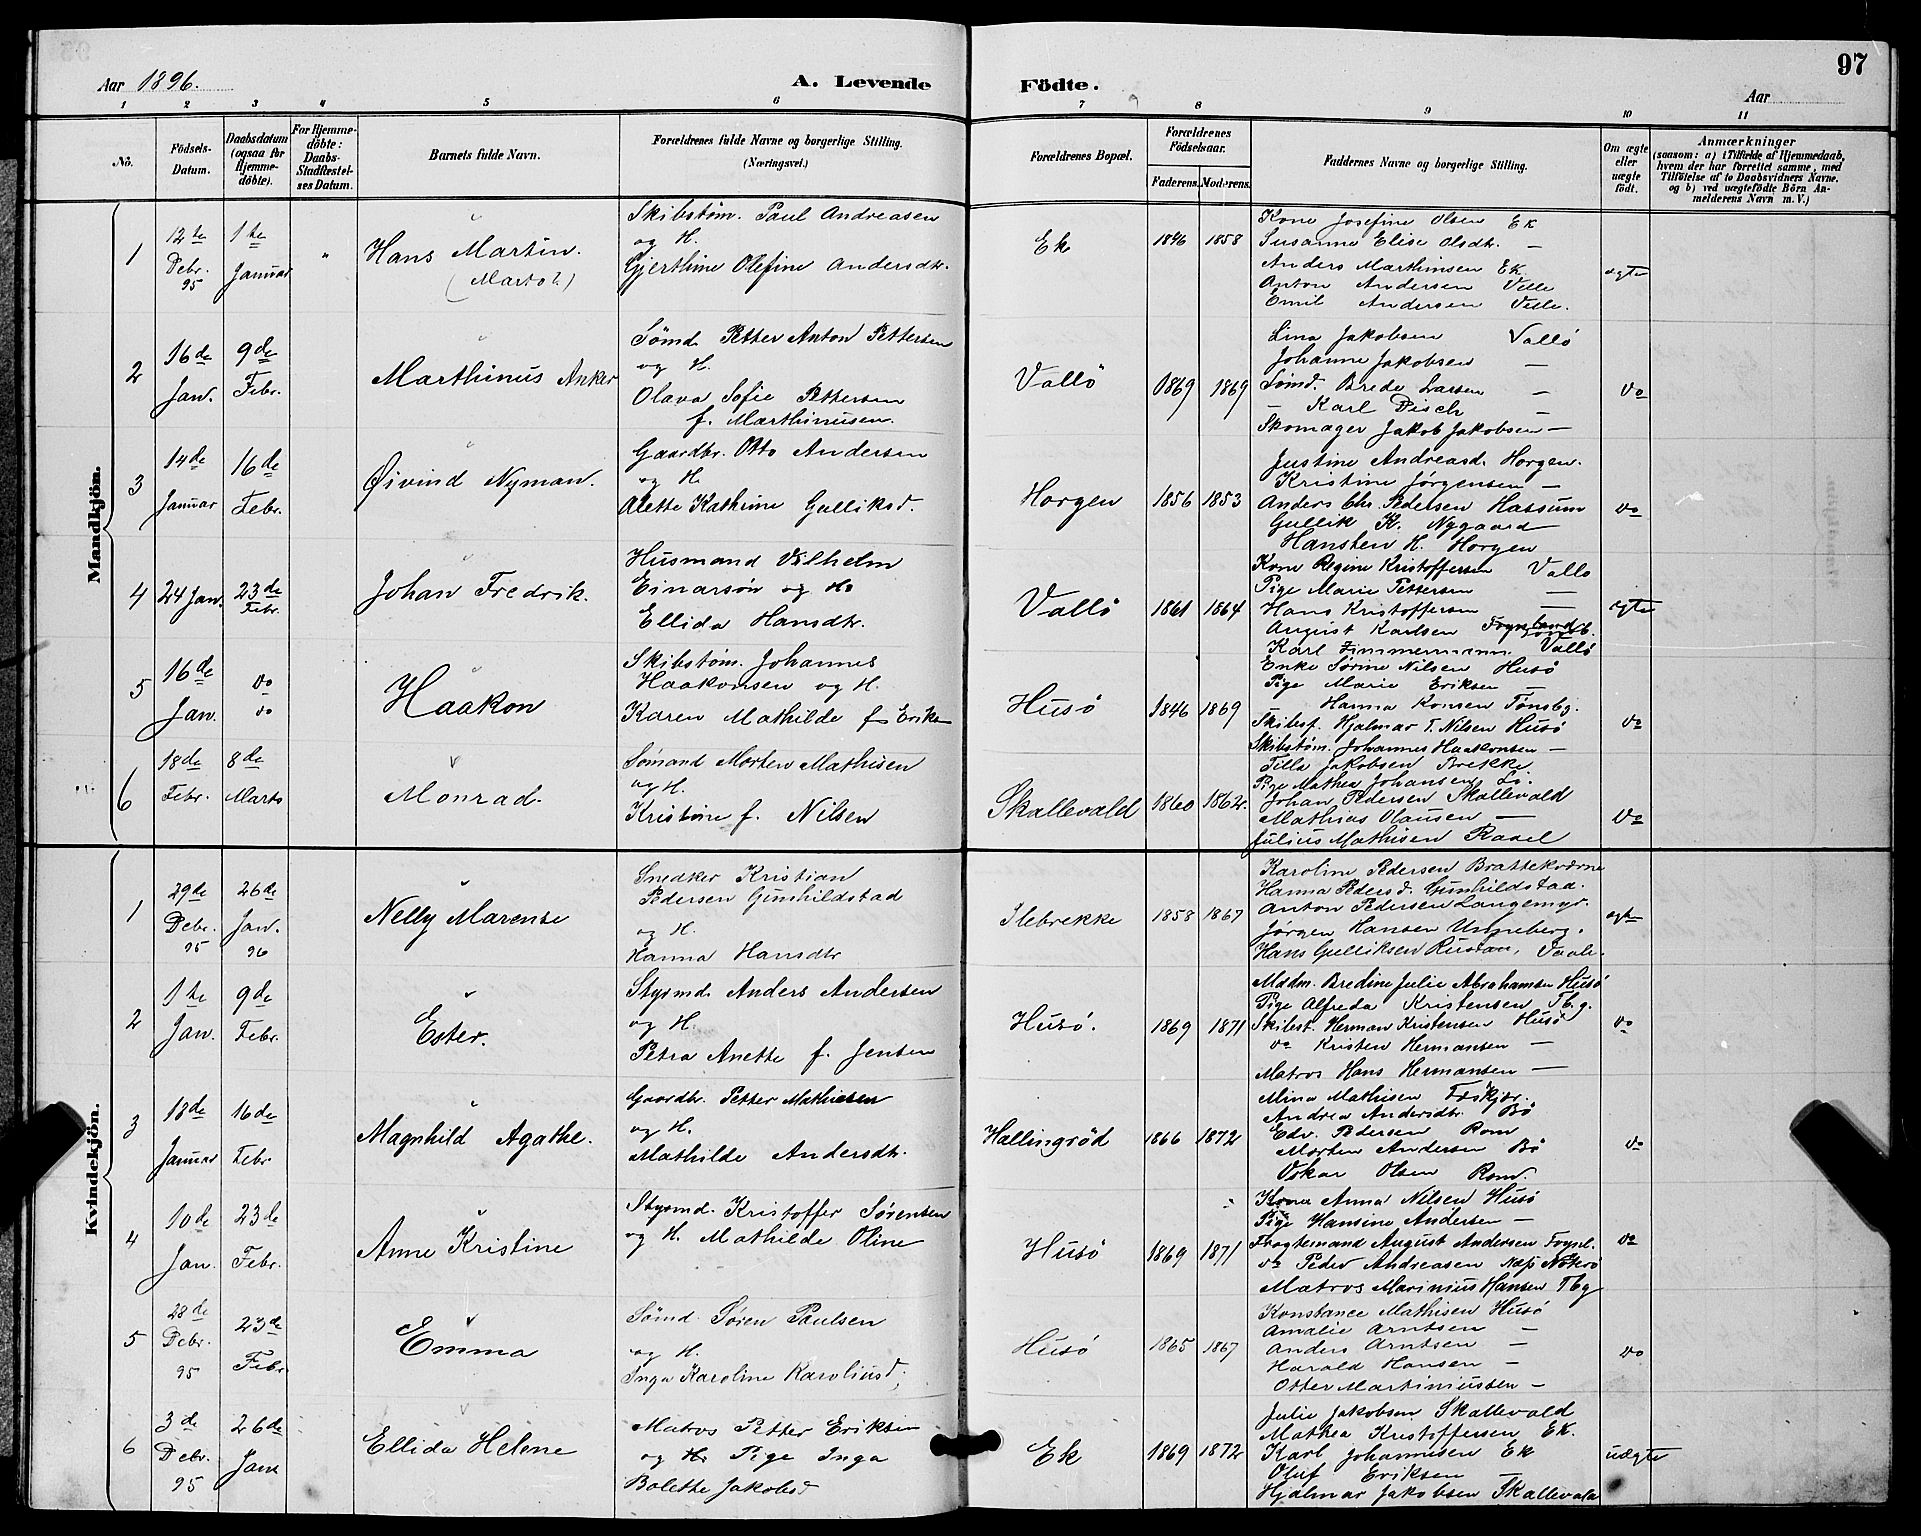 97
Aar 1896.
A. Levende
Födte.
Aar
1 2 3 4 5 6 7 8 9 10 11
No.
Födsels-Datum.
Daabsdatum (ogsaa for Hjemme-döbte).
For Hjemme-döbte: Daabs-Stadfestel-ses Datum.
Barnets fulde Navn.
Forældrenes fulde Navne og borgerlige Stilling. (Næringsvei.)
Forældrenes Bopæl.
Forældrenes Födselsaar.
Faderens. Moderens.
Faddernes Navne og borgerlige Stilling.
Om ægte eller uægte födt.
Anmærkninger
(saasom: a) i Tilfælde af Hjemmedaab, hvem der har forrettet samme, med Tilföielse af to Daabsvidners Navne. og b) ved uægtefödte Börn An-melderens Navn m. V.)
Mandkjön.
1
12te Debr. 95
1te Januar
"
Hans Martin.
Skibstøm. Paul Andreasen
og H.
Gjerthine Olefine Andersdtr.
Ek
1846 1858
Kone Josefine Olsen Ek
Susanne Elise Olsdtr. —
Anders Marthinsen Ek
Anton Andersen Velle
Emil Andersen Velle.
ægte
2
16de Jan.
9de Febr.
Marthinus Anker
Sømd. Petter Anton Pettersen
og H.
Olava Sofie Pettersen
f. Marthinusen.
Vallö
1869 1869
Lina Jakobsen Vallö
Johanne Jakobsen —
Sømd. Brede Larsen —
— Karl Disch —
Skomager Jakob Jakobsen —
do
3
14de Januar
16de Febr.
Øivind Nyman.
Gaardbr. Otto Andersen
og H.
Alette Kathrine Galliksd.
Horgen
1856 1853
Justine Andreasd. Horgen.
Kristine Jørgensen —
Anders Chr. Pedersen Hassum
Gullik K. Nygaard
Hansten H. Horgen
do
4
24 Jan.
23de Febr.
Johan Fredrik.
Husmand Vilhelm
Einarsøn og H.
Ellida Hansdtr.
Vallö
1861 1864
Kone Regine Kristoffersen Vallö
Pige Marie Pettersen —
Hans Kristoffersen —
August Karlsen
Karl Zimmermann. Vallö
ægte
5
16de Jan.
do do
Haakon
Skibstøm. Johannes
Haakonsen og H.
Karen Mathilde f. Eriksen
Husö
1846 1869
Enke Sørine Nilsen Husö
Pige Marie Eriksen —
— Hanna Konsen Tønsbg.
Skibsf. Hjalmar T. Nilsen Husö
Skibstøm. Johannes Haakonsen —
do
6
18de Febr.
8de Marts
Monrad.
Sømand Morten Mathisen
og H.
Kristine f. Nilsen
Skallevald
1860 1862.
Tilla Jakobsen Brekke
Pige Mathea Johansen
Johan Pedersen Skallevald
Mathias Olausen —
Julius Mathisen
do
Kvindekjön.
1
29de Debr. 95
26de Jan. 96
Nelly Marense
Snedker Kristian
Pedersen Gunhildstad
og H.
Hanna Hansdtr
Ilebrekke
1858 1867
Karoline Pedersen Brattekværne
Hanna Pedersd. Gunhildstad.
Anton Pedersen Langemyr.
Jørgen Hansen Unneberg.
Hans Gulliksen Rustan, Vaale.
ægte
2
1te Jan.
9de Febr.
Ester.
Styrmd. Anders Andersen
og H.
Petra Anette f. Jensen
Husö.
1869 1871
Mdm. Bredine Julie Abrahamsen Husö
Pige Alfreda Kristensen Tbg.
Skibst. Herman Kristensen Husö
do Kristen Hermansen —
Matros Hans Hermansen —
do
3
18de Januar
16de Febr.
Magnhild Agathe.
Gaardbr. Petter Mathiesen
og H.
Mathilde Andersdtr.
Hallingröd
1866 1872
Mina Mathisen
Andrea Andersdtr. Bö
Edv. Pedersen Rom
Morten Andersen Bö
Oskar Olsen Rom.
do
4
10de Jan.
23de Febr.
Anne Kristine
Styrmd. Kristoffer Sörensen
og H. Mathilde Oline
Husö
1869 1871
Kone Anna Nilsen Husö
Pige Hansine Andersen —
Fragtemand August Andersen Foynl.
do Peder Andreasen Næs Nøterö
Matros Marinius Hansen Tbg
do
5
28de Debr. 95
23de Febr
Emma
Sömd. Sören Paulsen
og H.
Inga Karoline Karoliusd.
Husö
1865 1867
Konstance Mathisen Husö
Amalie Arntsen —
Anders Arntsen —
Harald Hansen —
Otter Martiniussen —
do
6
3de Debr. 95
26de Jan
Ellida Helene
Matros Petter Eriksen
og Pige Inga
Bolette Jakobsd
Ek
1869 1872
Julie Jakobsen Skallevald
Mathea Kristoffersen Ek.
Karl Johannesen Ek
Oluf Eriksen —
Hjalmar Jakobsen Skallevald
uægte